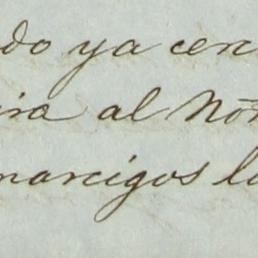 do ya cer
ira al Nor
marcigos la